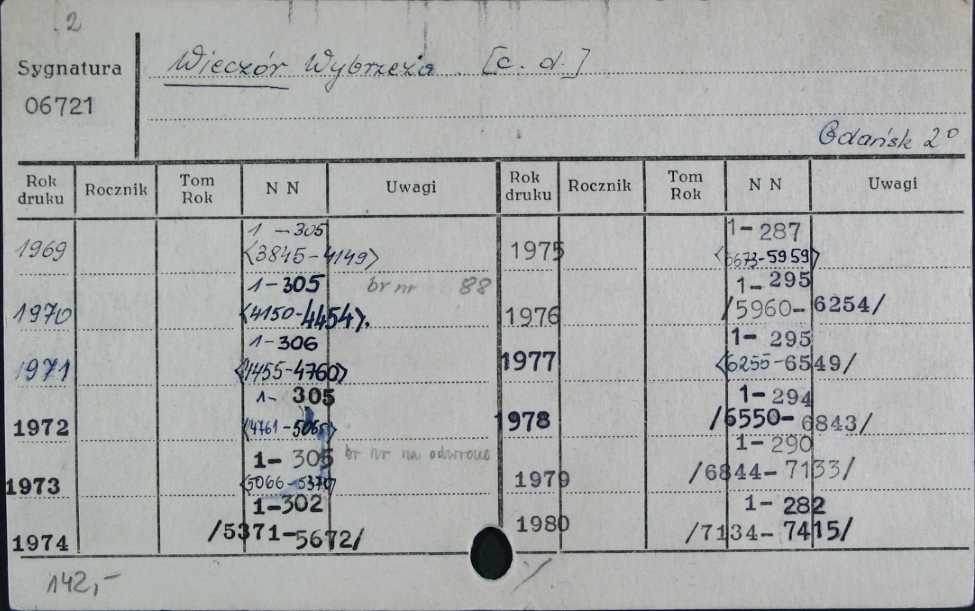 2
Wieczór Wybrzeża [c. d.]
Sygnatura
06721
Gdańsk 2°
Rok druku Rocznik Tom Rok N N Uwagi Rok druku Rocznik Tom Rok N N Uwagi
1969 1-305 <3845-4149>
1970 1-305 <4150-4454>. br nr 88
1971 1-306 <4455-4760>
1972 1-305 <4761-5065>
1973 1-305 <5066-5370> br nr na odwrocie
1974 1-302 /5371-5672/
1975 1-287 <5673-5959>
1976 1-295 /5960-6254/
1977 1-295 <6255-6549/
1978 1-294 /6550-6843/
1979 1-290 /6844-7133/
1980 1-282 /7134-7415/
142,-